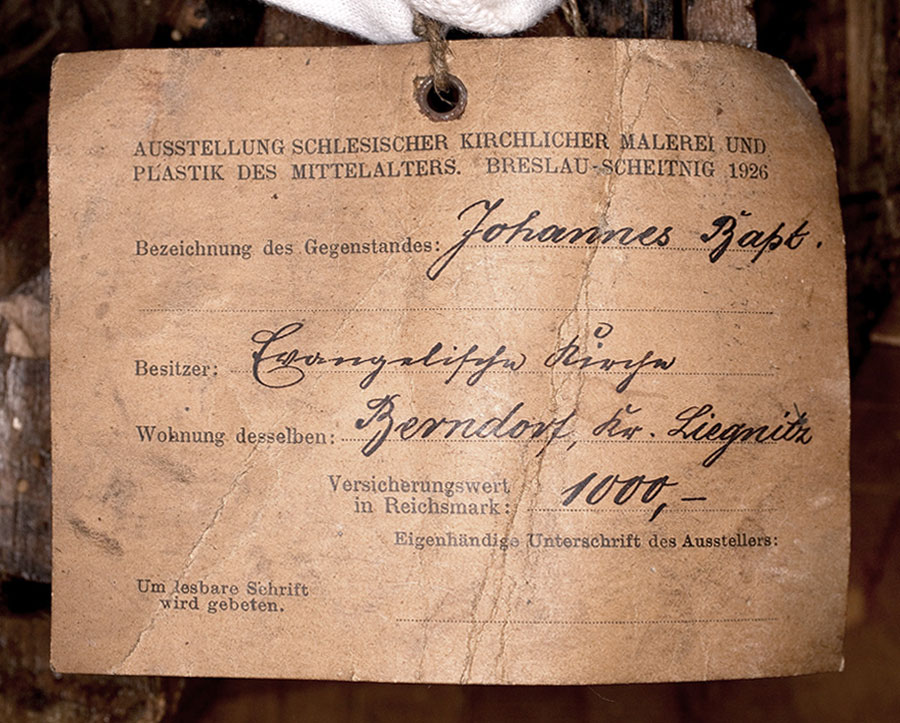 AUSSTELLUNG SCHLESISCHER KIRCHLICHER MALEREI UND
PLASTIK DES MITTELALTERS. BRESLAU-SCHEITNIG 1926
Bezeichnung des Gegenstandes: Johannes Bapt.
Besitzer: Evangelische Kirche
Wohnung desselben: Berndorf, Kr. Liegnitz
Versicherungswert
in Reichsmark: 1000,–
Eigenhändige Unterschrift des Ausstellers:
Um lesbare Schrift
wird gebeten.